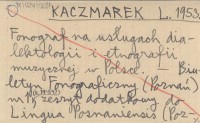 KACZMAREK L. 1953.
Fonograf na usługach dia-
lektologii i etnografii
muzycznej w Polsce. Biu-
letyn Fonograficzny (Poznań)
nr 1, zeszyt dodatkowy do
Lingua Posnaniensis (Poz-